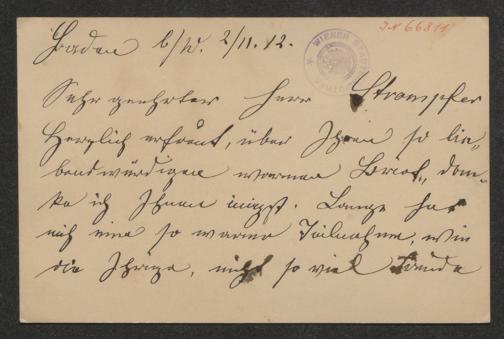 J.N 66811
WIENER STADT
Baden b/W. 2/11. 12.
Sehr geehrter Herr Strampfer
Herzlich erfreut, über Ihren so lie-
benswürdigen warmen Brief, dan-
ke ich Ihnen innigst. Lange hat
mich eine so warme Teilnahme, wie
die Ihrige, nicht so viel Freude